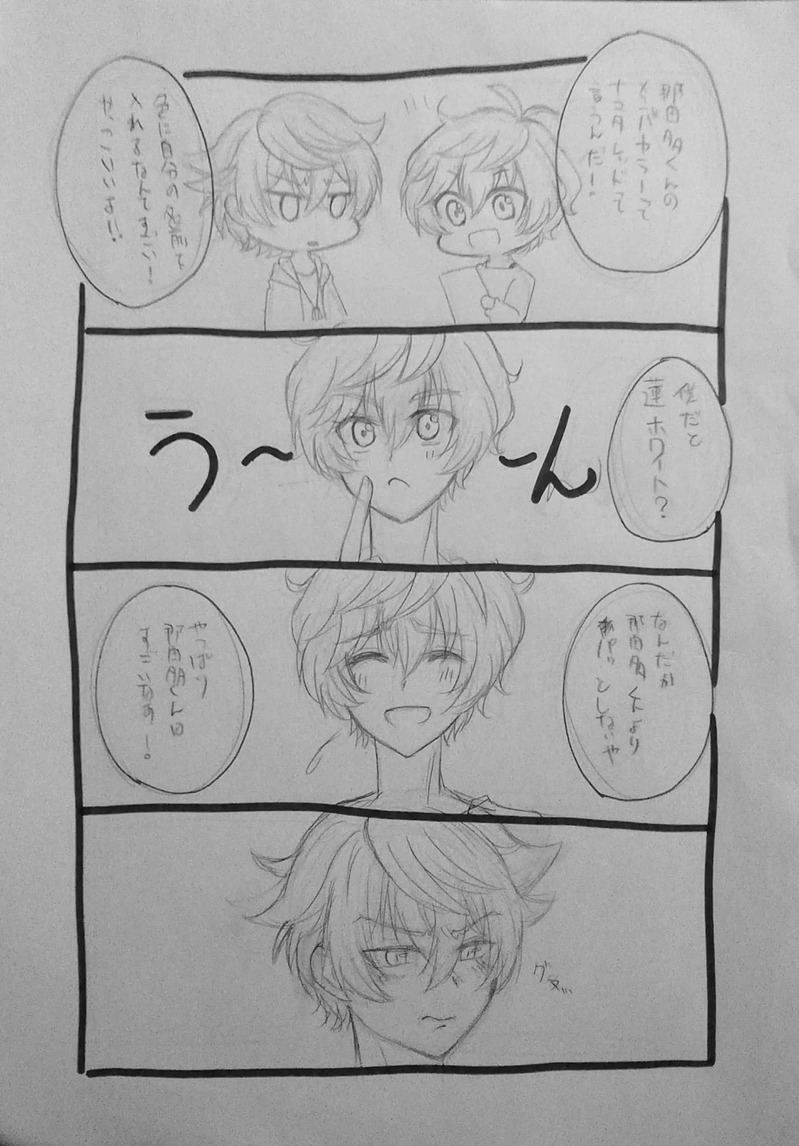 那由多くんの
メンバカラーって
ナユタレッドって
言うんだー!
色に自分の名前を
入れるなんてすごい!
かっこいいよ!
僕だと
蓮ホワイト?
う〜
〜ん
なんだか
那由多くんより
パッとしないや
やっぱり
那由多くんは
すごいなぁー!
グヌ…